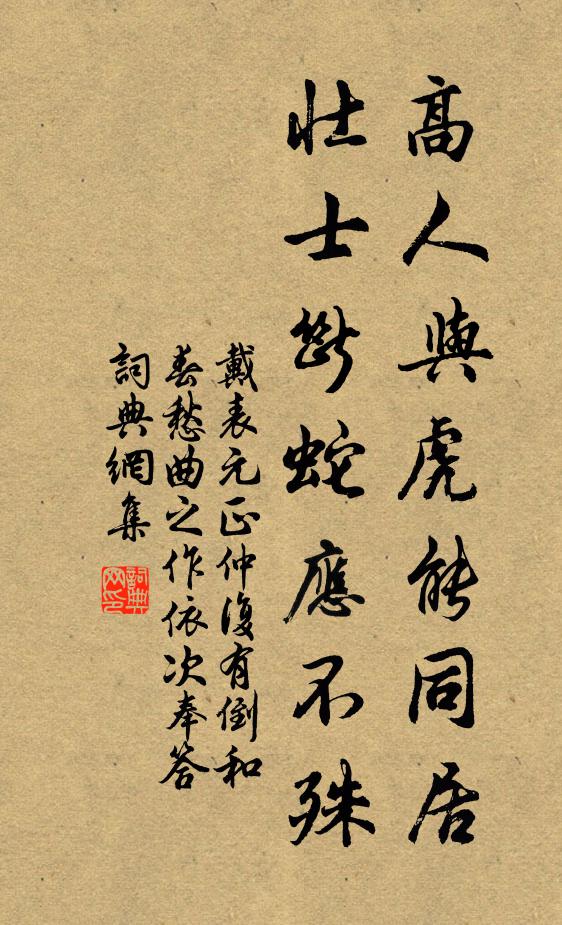 高人與虎能同居
壯士斷蛇應不殊
戴表元正仲復有倒和
春愁曲之作依次奉答
詞典網集
詞典
网印